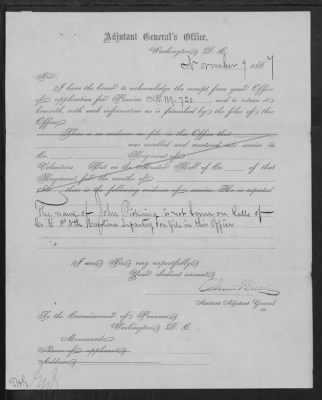 Adjutant General's Office,
Washington, D. C.
November 9, 1867
Sir:
I have the honor to acknowledge the receipt from your Office
of application for Pension No. 119.721, and to return it
herewith, with such information as is furnished by the files of this
Office.
There is no evidence on file in this Office that
was enrolled and mustered into service in
Co. Regiment of
Volunteers. But on the Muster Roll of Co. of that
Regiment for the months of
186 , there is the following evidence of service. He is reported
The name of John Pickering is not borne on Rolls of
Co G 1st Infantry on file in this Office
I am, Sir, very respectfully,
Your obedient servant,
Assistant Adjutant General.
To the Commissioner of Pensions,
Washington, D. C.
Memoranda:
Name of applicant,
Address,